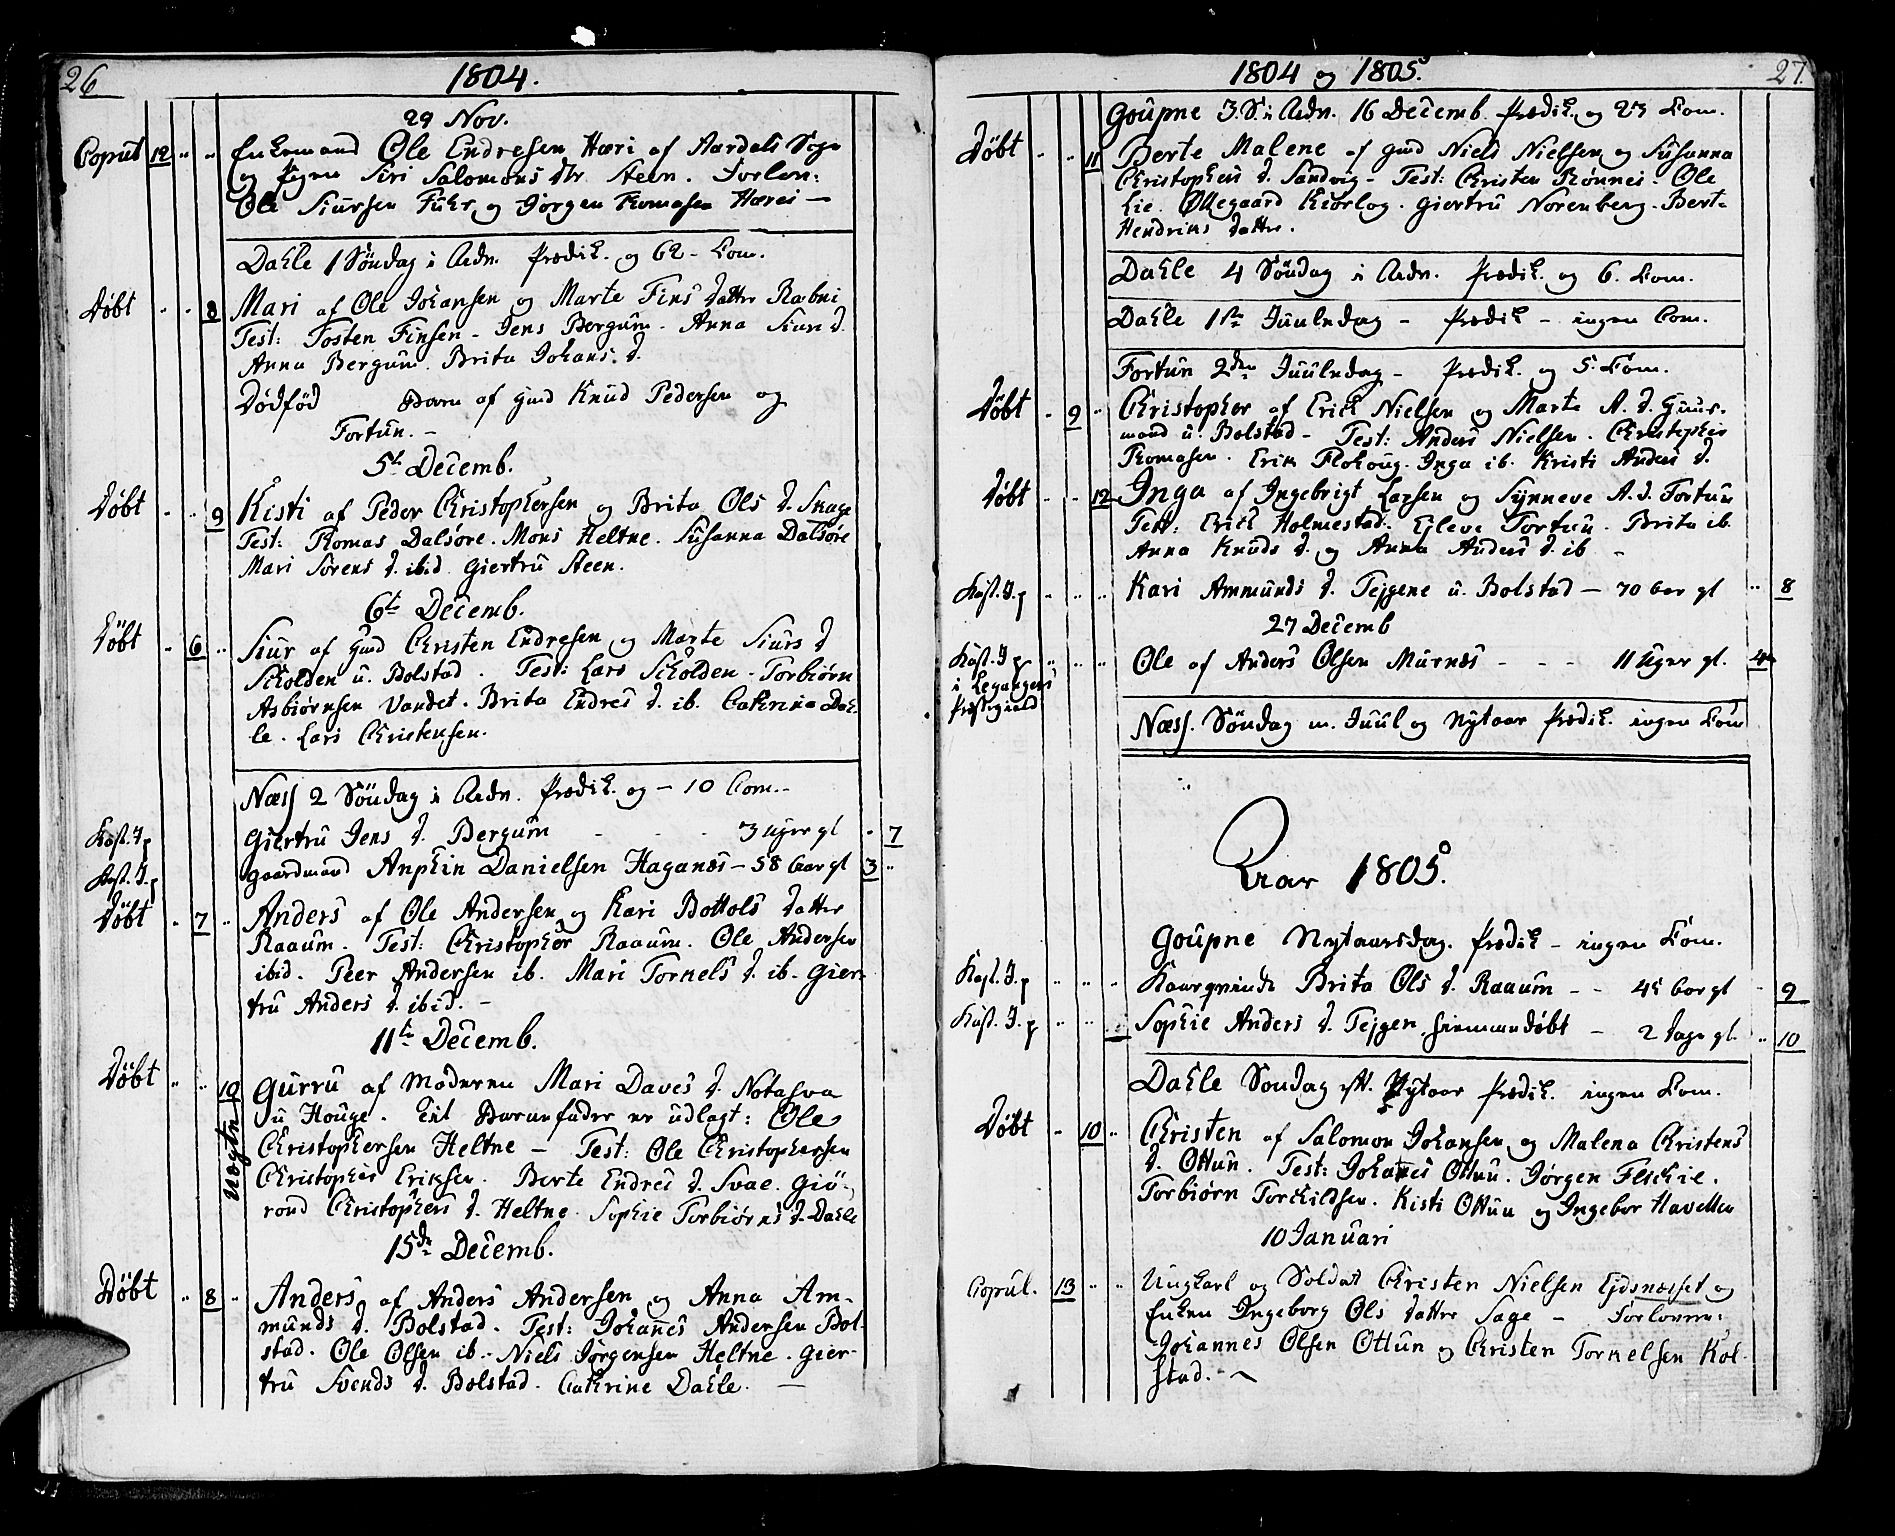 26
1804.
29 Nov.
Copul 12 " " Enkemand Ole Endresen Hæri af Aardals Sogn
og Pigen Siri Salomons dtr. Steen. Forlon:
Ole Siursen Fuhr og Jörgen Thomasen Hærei —
Dahle 1 Söndag i Adv. Prædik. og 62 - Com.
Döbt - - 8 Mari af Ole Johansen og Marte Fins datter Ræbni
Test: Tosten Finsen - Jens Bergum - Anna Siur d.
Anna Bergum. Brita Johans. d.
Dödföd Barn af Gmd Knud Pedersen og
Fortun. -
5t Decemb.
Döbt - - 9 Kisti af Peder Christophersen og Brita Ols d. Skage
Test: Thomas Dalsøre. Mons Heltne. Susanna Dalsöre
Mari Sörens d. ibid Giertru Steen.
6te Decemb.
Döbt - 6 " Siur af Gmd Christen Endresen og Marte Siurs d
Schölden u. Bolstad. Test: Lars Schölden - Torbiörn
Asbiörnsen Vandet. Brita Endres d. ib. Cathrina Dah-
le. Lars Christensen.
Næss 2 Söndag i Adv. Prædik. og - 10 Com. -
Kast. J. p Giertru Jens d. Bergum - - - 3 Uger gl - 7
Kast. J. p Gaardmand Anphin Danielsen Haganæs - 58 Aar gl 3 "
Döbt - 7 " Anders af Ole Andersen og Kari Bottols datter
Raaum. Test: Christopher Raaum. Ole Andersen
ibid. Peer Andersen ib. Mari Tornels d. ib. Gier-
tru Anders d. ibid. -
11te Decemb.
Döbt " " 10 Gurru af Moderen Mari Daves d. Notasva
u Houge. Til Barnefader er udlagt: Ole
Uægte
Christophersen Heltne - Test: Ole Christophersen
Christopher Eriksen. Berte Endres d. Svae. Giö-
rond Christophers d. Heltne. Sophie Torbiörns d. Dahle
15de Decemb.
Döbt " 8 " Anders af Anders Andersen og Anna Am-
munds d. Bolstad. Test: Johanes Andersen Bol-
stad. Ole Olsen ib. - Niels Jörgensen Heltne. Gier-
tru Svends d. Bolstad. Cathrine Dahle. —
27.
1804 og 1805.
Goupne 3. S. i Adv. 16 Decemb. Prædik. og 23 Com.
Döbt - " 11 Berte Malene af Gmd Niels Nielsen og Susanna
Christophers d. Sandvig - Test: Christen Rönnei. Ole
Lie. Ollegaard Kiörlog. Giertru Norenberg. Bert-
Hendriks datter.
Dahle 4 Söndag i Adv. Prædik. og 6. Com.
Dahle 1ste Juuledag - Prædik - ingen Com.
Fortun 2den Juuledag - Prædik. og 5. Com.
Döbt - 9 " Christopher af Erich Nielsen og Marte A. d. Huus-
mand u. Bolstad - Test: Anders Nielsen. Christopher
Thomasen. Erik Flohoug. Inga ib. Kristi Anders d.
Döbt - - 12 Inga af Ingebrigt Larsen og Synneve A. d. Fortun
Test: Erich Holmestad. Eileve Fortun. Brita ib.
Anna Knuds d. og Anna Anders d. ib -
Kast. J. p - " " Kari Ammunds d. Tejgene u. Bolstad - 70 Aar gl " 8
27 Decemb
Kast. J. p " " " Ole af Anders Olsen Murnæs - - - 11 Uger gl. 4 "
i Leganger
Præstegield
Næss. Söndag m. Juul og Nytaar Prædik. ingen Com
Aar 1805.
Goupne Nytaarsdag. Prædik - ingen Com.
Kast. J. p " " " Brita Ols d. Raaum - - 45 Aar gl - 9
Kast. J. p " " " Sophie Anders d. Tejgen hiemmedöbt - 2 Dage gl. " 10
Dahle Söndag eft. Nytaar Prædik. ingen Com.
Döbt - 10 " Christen af Salomon Johansen og Malena Christens
d. Ottun. Test: Johanes Ottun. Jörgen Flschie.
Torbiörn Torchildsen. Kisti Ottun og Ingebor Havellen
10 Januari
Copul. 13 " " Ungkarl og Soldat Christen Nielsen Ejdsnæsset og
Enken Ingeborg Ols datter Sage - Forlovere:
Johannes Olsen Ottun og Christen Tornelsen Kol-
stad. -